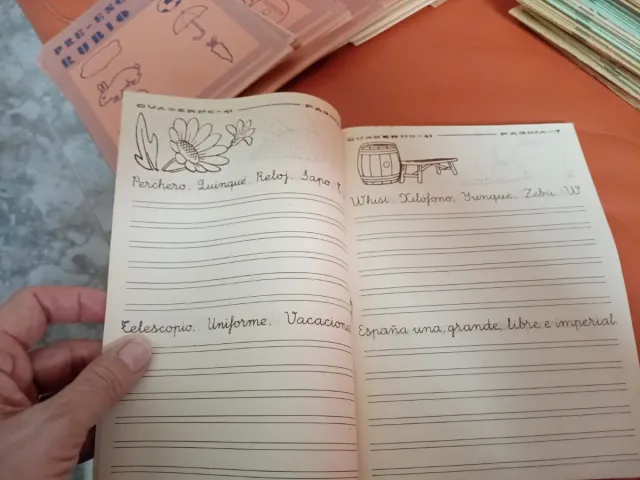 PRE-ESC
RUBIO
CUADERNO-41 PAGINA
Perchero, Quinqué, Reloj, Sapo,
Telescopio, Uniforme, Vacacione
CUADERNO-41 PAGINA-7
Whisi, Xilófono, Yunque, Zebú, W
España una, grande, libre e imperial.